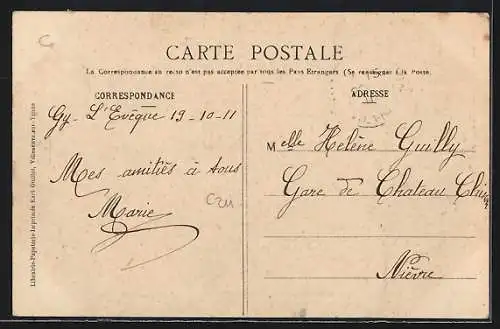 CARTE POSTALE
La Correspondance au recto n'est pas acceptée par tous les Pays Etrangers (Se renseigner à la Poste.
CORRESPONDANCE
Gy-L'Evêque 19-10-11
Mes amitiés à tous
Marie
ADRESSE
Melle Helène Guilly
Gare de Chateau Chinon
Nièvre
Librairie-Papeterie-Imprimerie Karl Guillot, Villeneuve-sur-Yonne